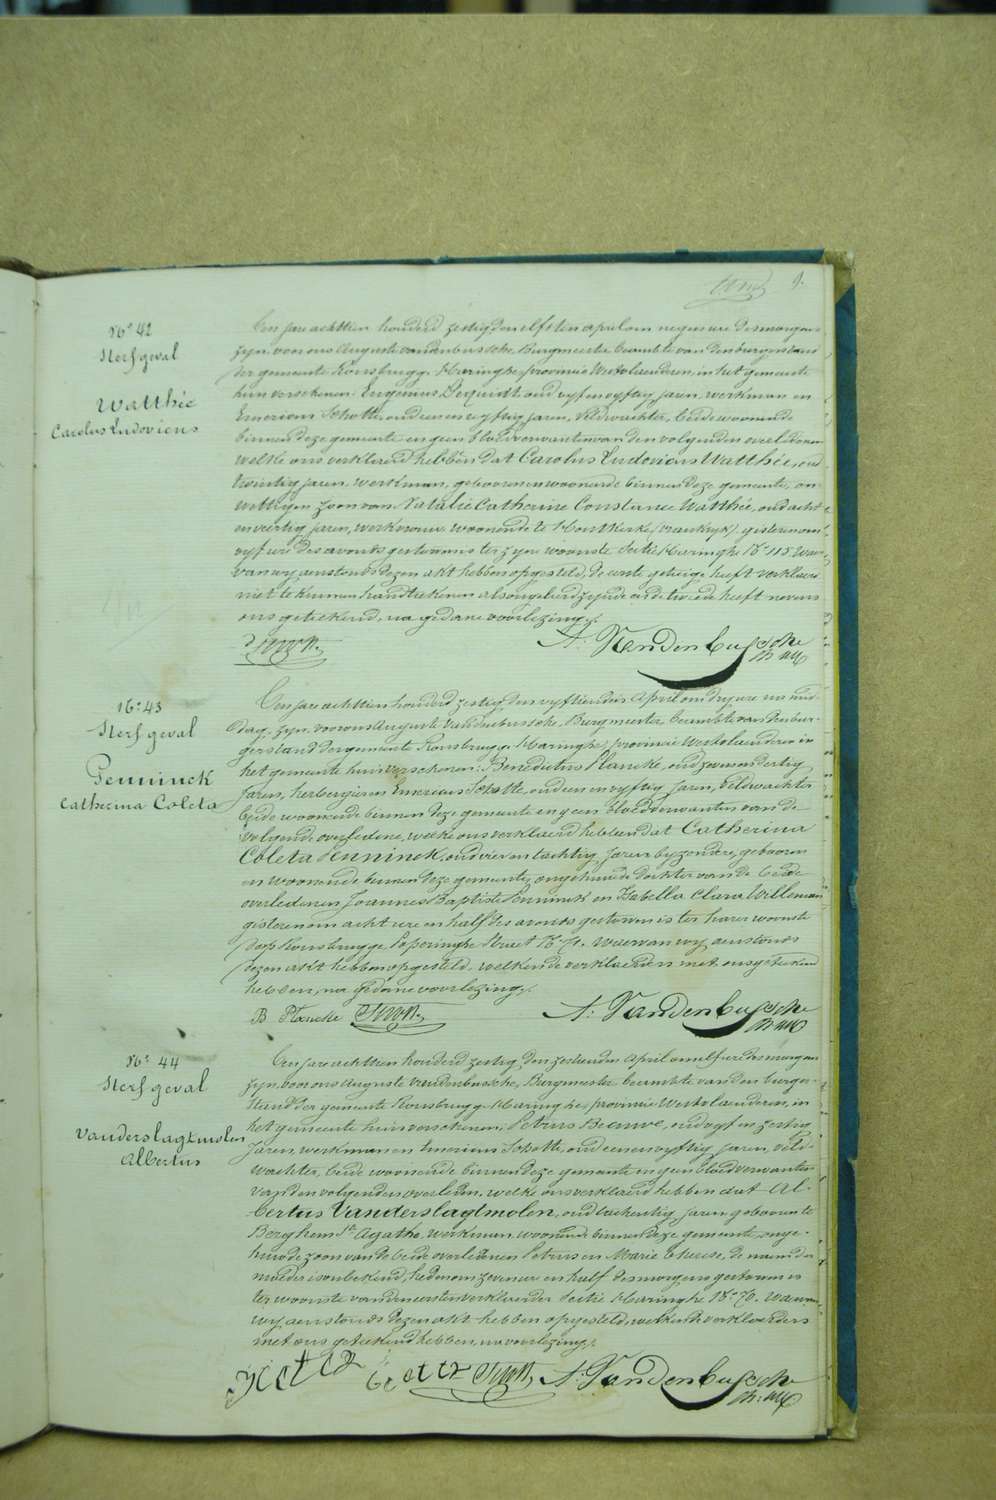 9.
N° 42
Sterfgeval
Watthée
Carolus Ludovicus
Een jare achttien honderd zestig den elfsten april om negen ure des morgens
zyn, voor ons Auguste Vandenbussche, Burgmeester beambte van den burgerstand
der gemeente Rousbrugge-Haringhe, provincie Westvlaenderen, in het gemeente
huis verschenen: Eugenius Dequidt, oud vyf en vyftig jaren, werkman en
Emerious Schotte, oud een en vyftig jaren, Veldwachter, beide woonende
binnen deze gemeente en geen bloedverwanten van den volgenden overledenen
welke ons verklaerd hebben dat Carolus Ludovicus Watthée, oud
twintig jaren, werkman, geboren en woonende binnen deze gemeente, on-
wettigen zoon van Natalie Catherine Constance Watthée, oud acht
en veertig jaren, werkvrouw woonende te Hontkerke (vrankryk) gisteren om
vyf ure des avonds gestorven is ter zyne woonste sectie Haringhe N° 115. Waer
van wy aenstonds dezen akt hebben opgesteld, de eerste getuige heeft verklaerd
niet te kunnen handteekenen als ongeleerd zynde en de tweede heeft nevens
ons geteekend, na gedane voorlezing.
Schotte
A. Vandenbussche
N° 43
Sterfgeval
Penninck
Catherina Coleta
Een jare achttien honderd zestig, den vyftienden April om dry ure na mid-
dag, zyn, voor ons Auguste Vandenbussche, Burgmeester beambte van den bur-
gerstand der gemeente Rousbrugge-Haringhe, provincie Westvlaenderen in
het gemeente huis verschenen: Benedictus Plancke, oud zeven en dertig
jaren, herbergier en Emerious Schotte, oud een en vyftig jaren, Veldwachter
beide woonende binnen deze gemeente en geen bloedverwanten van de
volgende overledene, welke ons verklaerd hebben dat Catherina
Coleta Penninck, oud vier en tachtig jaren, byzondere, geboren
en woonende binnen deze gemeente, ongehuwde dochter van de beide
overledenen Joannes Baptiste Penninck en Isabella Clara Willeman
gisteren om acht ure en half des avonds gestorven is ter harer woonste
dorp Rousbrugge Poperinghe straet N° 71. Waervan wy aenstonds
dezen akt hebben opgesteld, welken de verklaerders met ons geteekend
hebben, na gedane voorlezing.
B Plancke Schotte
A. Vandenbussche
N° 44
Sterfgeval
Vanderslagtmolen
Albertus
Een jare achttien honderd zestig, den zestienden April om elf ure des morgens
zyn, voor ons Auguste Vandenbussche, Burgmeester beambte van den burger-
stand der gemeente Rousbrugge-Haringhe, provincie Westvlaenderen, in
het gemeente huis verschenen: Petrus Beauve, oud vyf en zestig
jaren, werkman en Emerious Schotte, oud een en vyftig jaren, veld-
wachter, beide woonende binnen deze gemeente en geen bloedverwanten
van den volgenden overleden, welke ons verklaerd hebben dat Al-
bertus Vanderslagtmolen, oud tachentig jaren geboren te
Berghem Ste Agathe, werkman woonende binnen deze gemeente, onge-
huwde zoon van de beide overledenen Petrus en Marie Therese, de naem der
moeder is onbekend, heden om zeven ure en half des morgens gestorven is
ter woonste van den eersten verklaerder sectie Haringhe N° 70. Waervan
wy aenstonds dezen akt hebben opgesteld, welken de verklaerders
met ons geteekend hebben, na voorlezing.
Schotte A. Vandenbussche